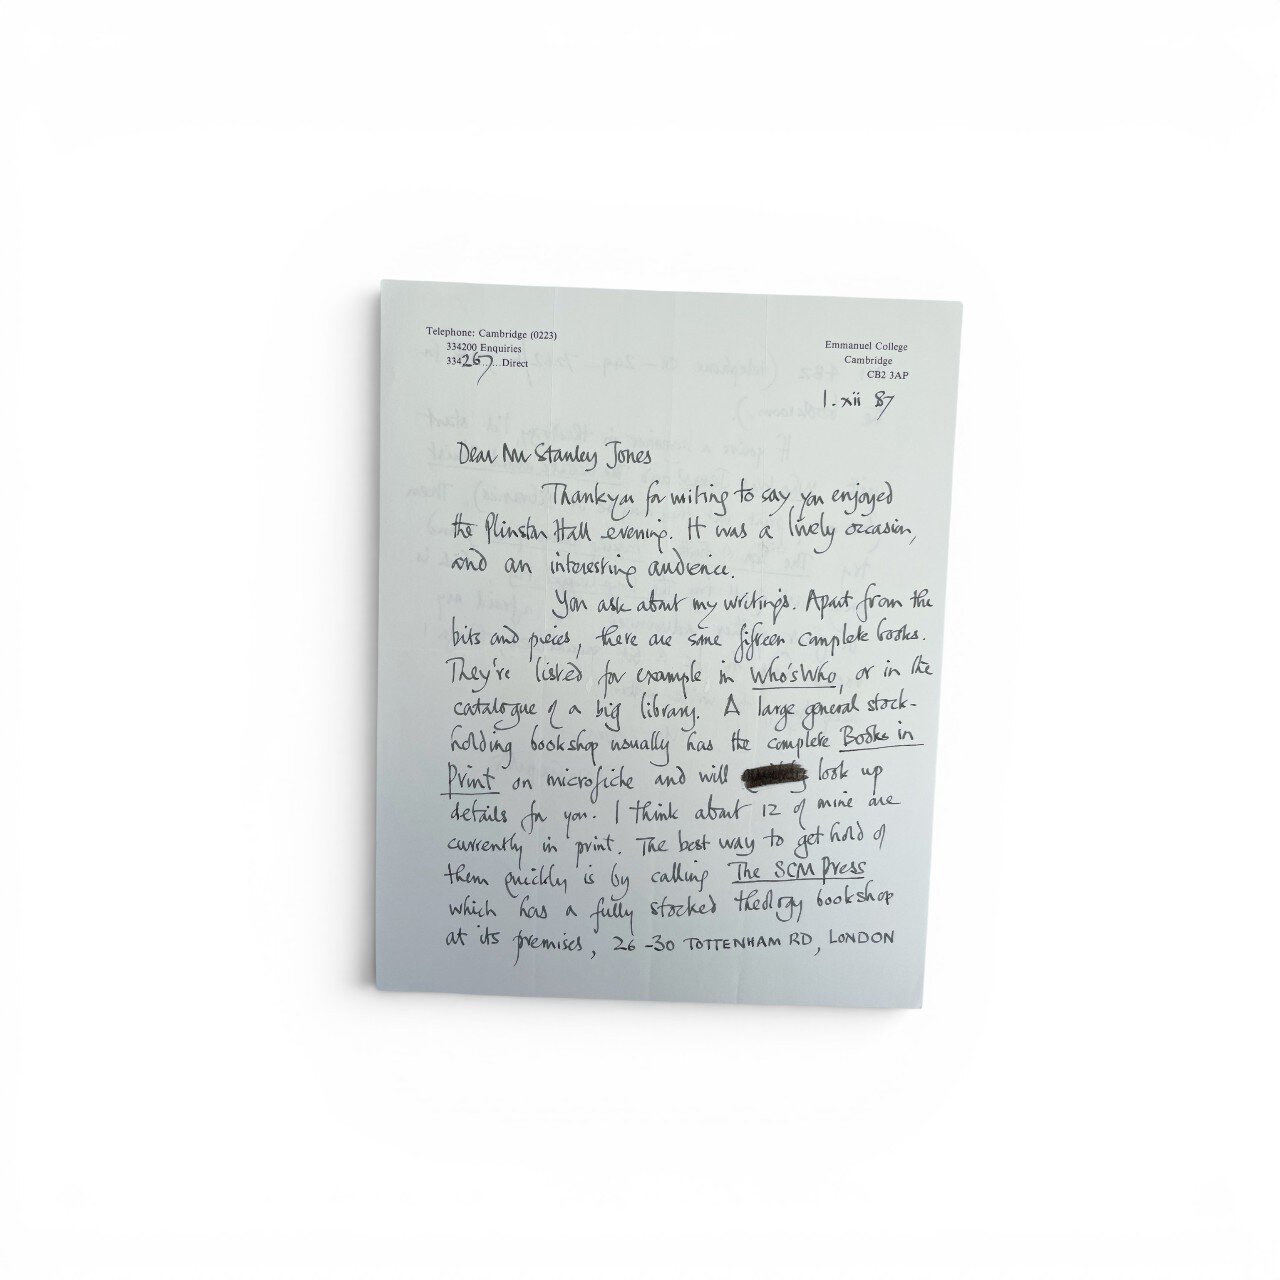 Telephone: Cambridge (0223)
334200 Enquiries
334267..... Direct
Emmanuel College
Cambridge
CB2 3AP
1. xii 87
Dear Mr Stanley Jones
Thankyou for writing to say you enjoyed
the Plinston Hall evening. It was a lively occasion,
and an interesting audience.
You ask about my writings. Apart from the
bits and pieces, there are some fifteen complete books.
They're listed for example in Who'sWho, or in the
catalogue of a big library. A large general stock-
holding bookshop usually has the complete Books in
Print on microfiche and will look up
details for you. I think about 12 of mine are
currently in print. The best way to get hold of
them quickly is by calling The SCM Press
which has a fully stocked theology bookshop
at its premises, 26-30 TOTTENHAM RD, LONDON